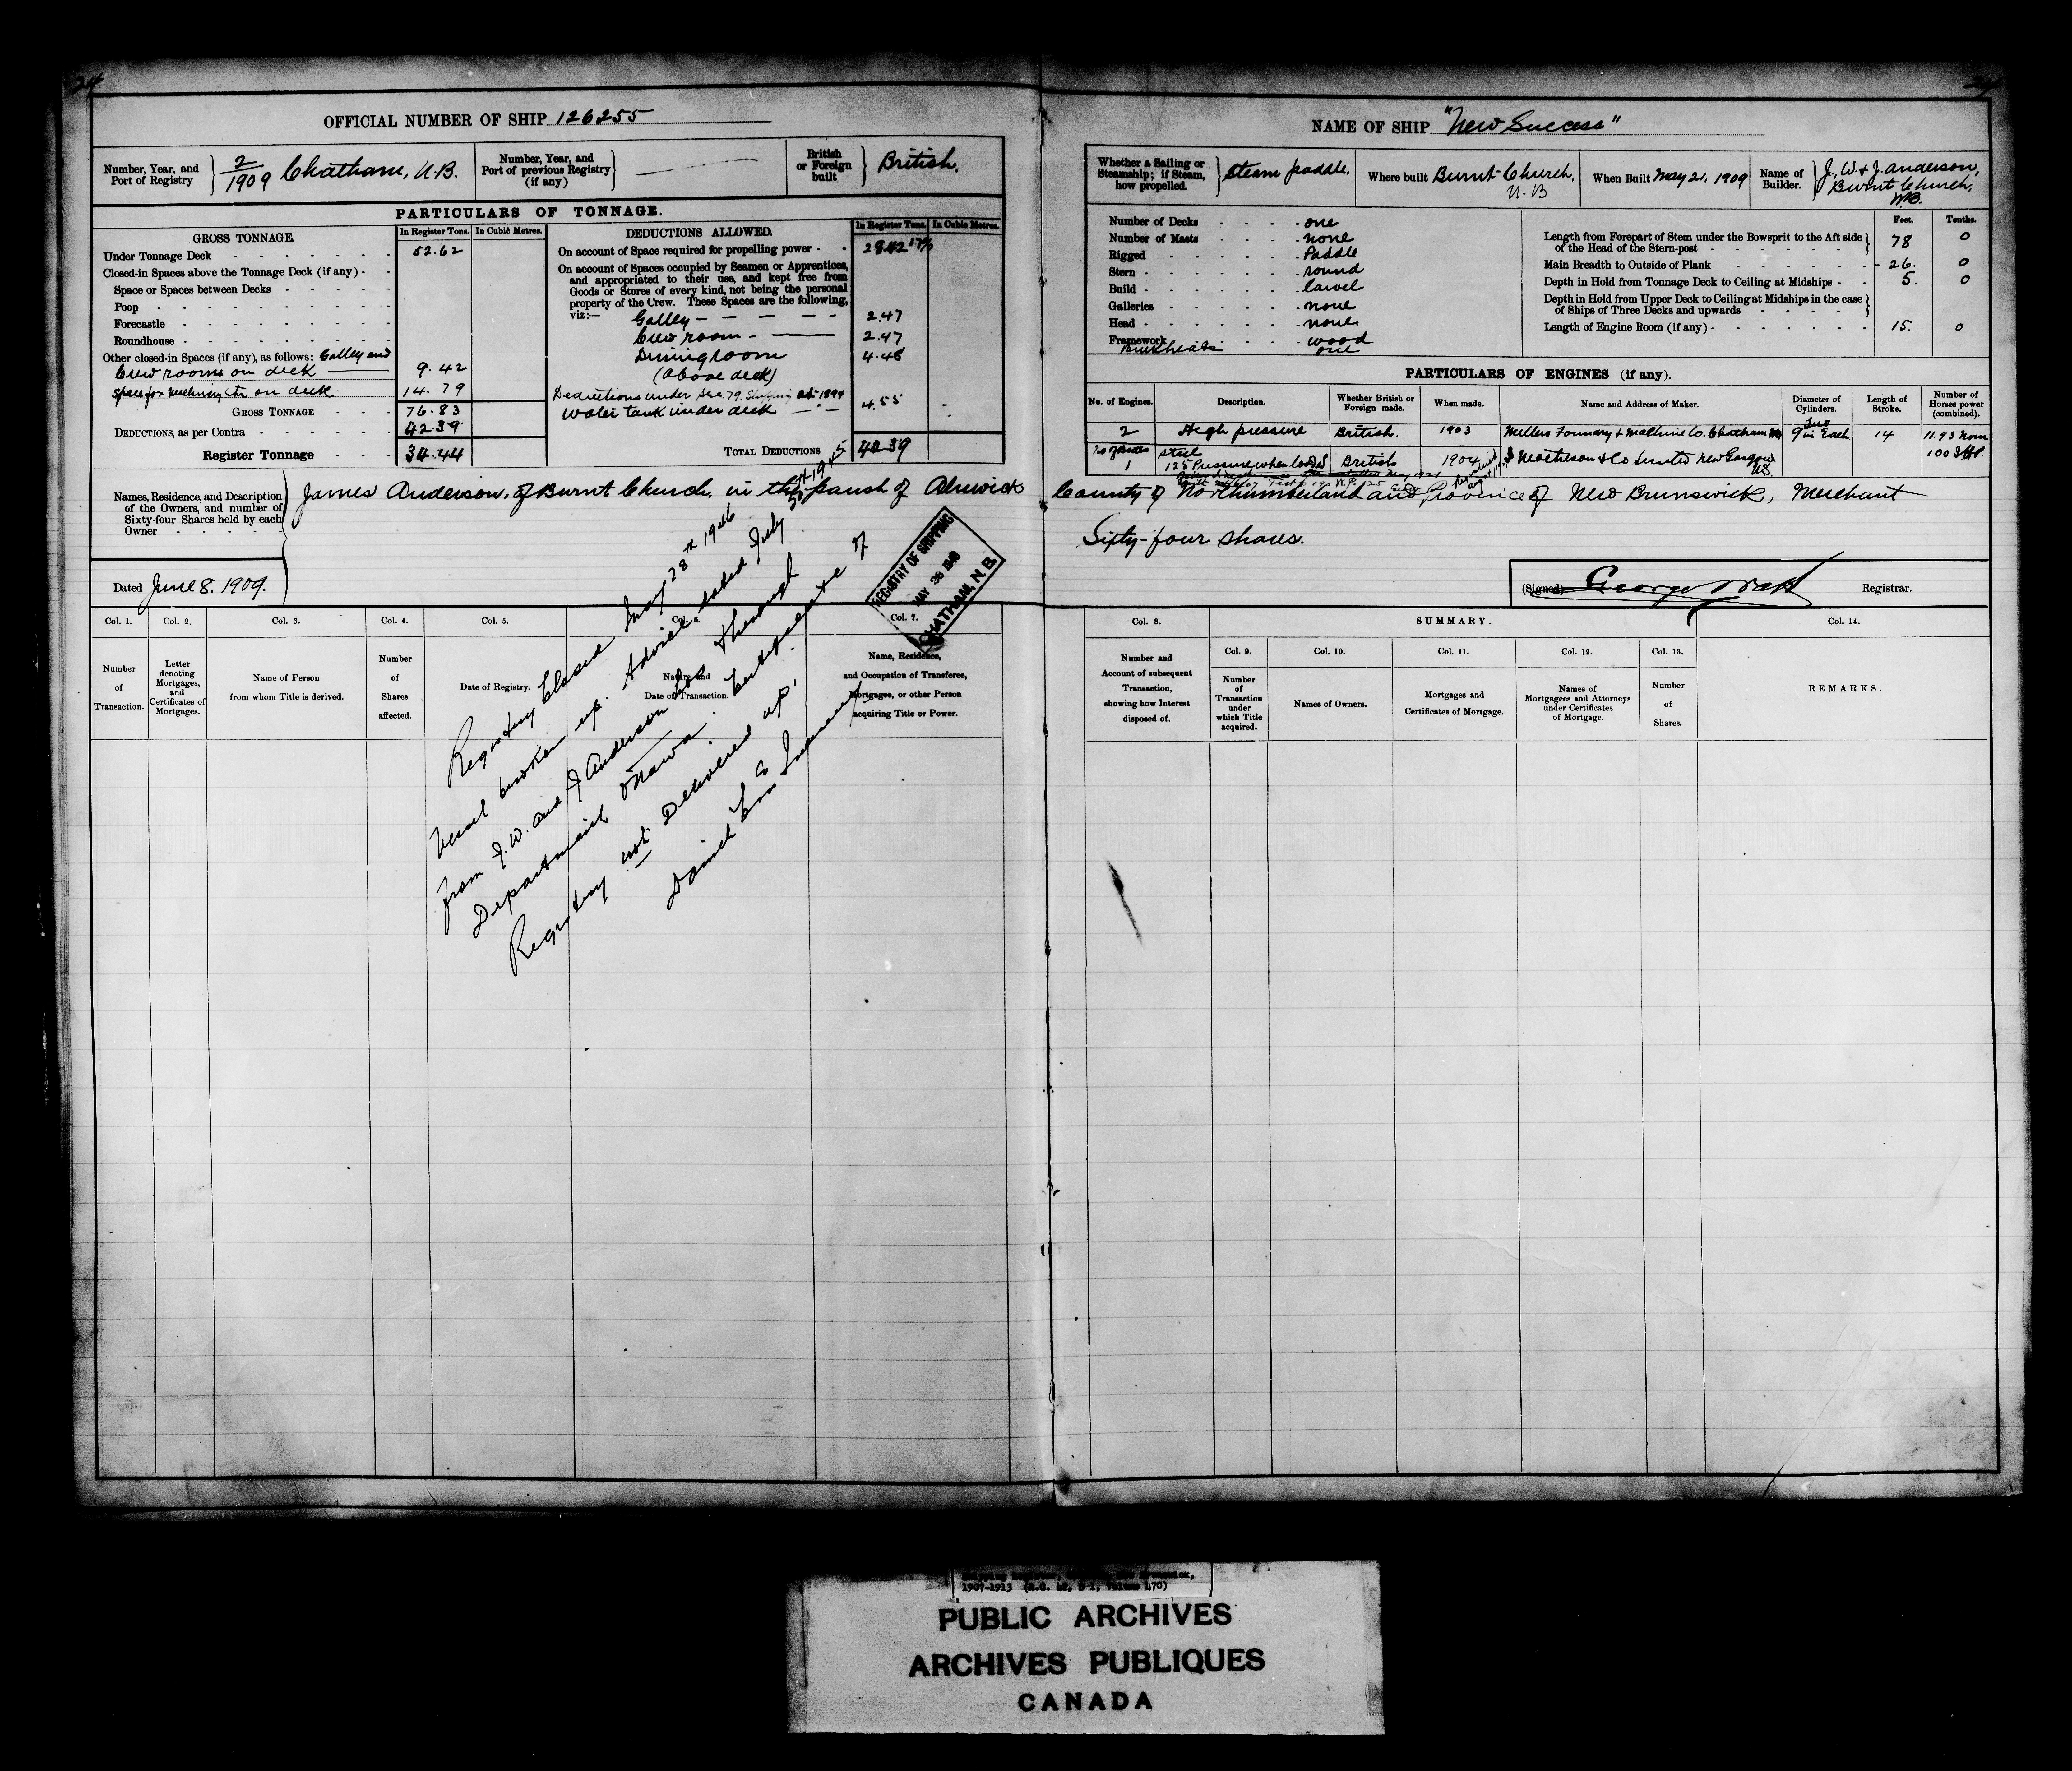 24
24
OFFICIAL NUMBER OF SHIP 126255
NAME OF SHIP "New Success"
Number, Year, and Port of Registry 2/1909 Chatham, N.B.
Number, Year, and Port of previous Registry (if any)
British or Foreign built British.
Whether a Sailing or Steamship; if Steam, how propelled. Steam paddle.
Where built Burnt Church, N.B
When Built May 21, 1909
Name of Builder. J., W. & J. Anderson, Burnt Church, N.B.
PARTICULARS OF TONNAGE.
GROSS TONNAGE.
In Register Tons. In Cubic Metres.
Under Tonnage Deck 52.62
Closed-in Spaces above the Tonnage Deck (if any)
Space or Spaces between Decks
Poop
Forecastle
Roundhouse
Other closed-in Spaces (if any), as follows: Galley and
Crew rooms on deck 9.42
Space for Machinery &c on deck 14.79
GROSS TONNAGE 76.83
DEDUCTIONS, as per Contra 42.39
Register Tonnage 34.44
DEDUCTIONS ALLOWED.
In Register Tons. In Cubic Metres.
On account of Space required for propelling power 28.42
On account of Spaces occupied by Seamen or Apprentices,
and appropriated to their use, and kept free from
Goods or Stores of every kind, not being the personal
property of the Crew. These Spaces are the following,
viz:—
Galley 2.47
Crew room 2.47
Dining room 4.48
(above deck)
Deductions under Sec. 79. Shipping Act 1894
Water tank under deck 4.55
TOTAL DEDUCTIONS 42.39
Number of Decks one
Number of Masts none
Rigged Paddle
Stern round
Build Carvel
Galleries none
Head none
Framework wood
Bulkheads one
Feet. Tenths.
Length from Forepart of Stem under the Bowsprit to the Aft side
of the Head of the Stern-post 78 0
Main Breadth to Outside of Plank 26. 0
Depth in Hold from Tonnage Deck to Ceiling at Midships 5. 0
Depth in Hold from Upper Deck to Ceiling at Midships in the case
of Ships of Three Decks and upwards
Length of Engine Room (if any) 15. 0
PARTICULARS OF ENGINES (if any).
No. of Engines. Description. Whether British or Foreign made. When made. Name and Address of Maker. Diameter of Cylinders. Length of Stroke. Number of Horses power (combined).
2 High pressure British. 1903 Millers Foundry & Machine Co. Chatham NB Two 9 in Each 14 11.93 Nom
No of Boilers Steel 100 IHP.
1 125 Pressure when loaded British 1904 I Matheson & Co Limited New Glasgow NS.
Names, Residence, and Description
of the Owners, and number of
Sixty-four Shares held by each
Owner
James Anderson, of Burnt Church. in the parish of Alnwick County of Northumberland and Province of New Brunswick, Merchant
Sixty-four shares.
Dated June 8. 1909.
(Signed) George Watt Registrar.
REGISTRY OF SHIPPING
MAY 28 1946
CHATHAM, N.B.
Col. 1. Col. 2. Col. 3. Col. 4. Col. 5. Col. 6. Col. 7.
Number of Transaction.
Letter denoting Mortgages, and Certificates of Mortgages.
Name of Person from whom Title is derived.
Number of Shares affected.
Date of Registry.
Nature and Date of Transaction.
Name, Residence, and Occupation of Transferee, Mortgagee, or other Person acquiring Title or Power.
Col. 8. SUMMARY. Col. 14.
Col. 9. Col. 10. Col. 11. Col. 12. Col. 13.
Number and Account of subsequent Transaction, showing how Interest disposed of.
Number of Transaction under which Title acquired.
Names of Owners.
Mortgages and Certificates of Mortgage.
Names of Mortgagees and Attorneys under Certificates of Mortgage.
Number of Shares.
REMARKS.
Registry Closed May 28th 1946
Vessel broken up. Advice dated July 5th 1945
from J. W. and J Anderson Co through
Department Ottawa. Certificate of
Registry not Delivered up.
1907-1913 (R.G. 42, Volume 170)
PUBLIC ARCHIVES
ARCHIVES PUBLIQUES
CANADA